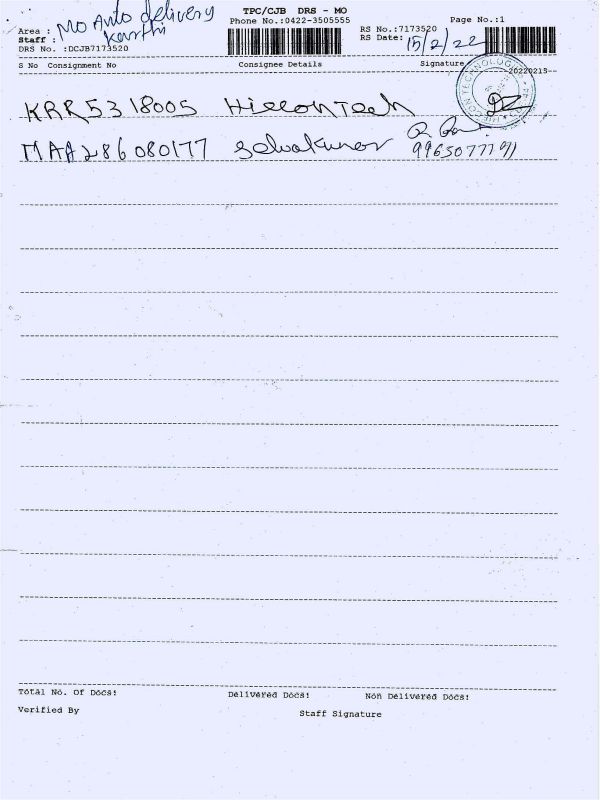 TPC/CJB DRS - MO
Phone No.:0422-3505555
Page No.:1
Area : MO Auto delivery
Staff : Karthi
DRS No. :DCJB7173520
RS No.:7173520
RS Date: 15/2/22
S No Consignment No Consignee Details Signature
20220215-
KRR5318005 Hiscon Tech
MAA286080177 Selvakumar
9965077791
Total No. Of Docs: Delivered Docs: Non Delivered Docs:
Verified By Staff Signature